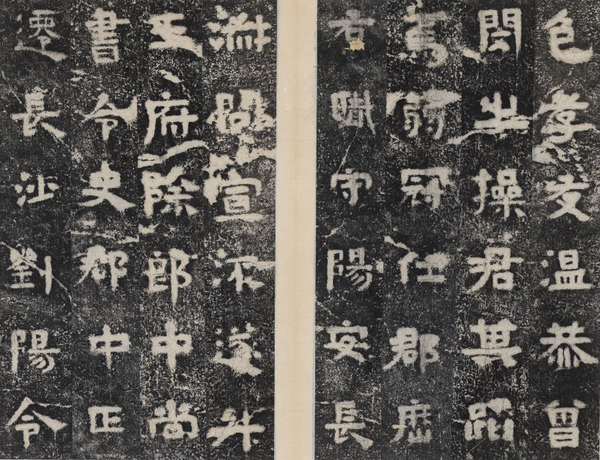 色孝友温恭曾
閔之操君其蹈
焉弱冠仕郡歷
右職守陽安長
宣流遂升
王府除郎中尚
書令史郡中正
遷長沙劉陽令